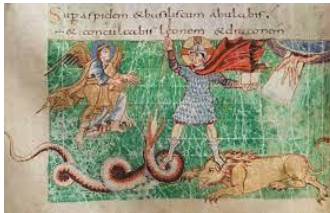 Sup aspidem & basiliscum ābulabis,
& conculcabis leonem & draconem